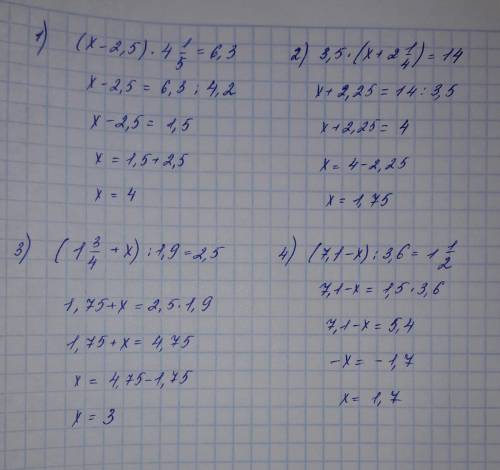 1) (x-2,5) · 4 1/5 = 6,3
x-2,5 = 6,3 : 4,2
x-2,5 = 1,5
x = 1,5+2,5
x = 4
2) 3,5 · (x+2 1/4) = 14
x+2,25 = 14 : 3,5
x+2,25 = 4
x = 4-2,25
x = 1,75
3) (1 3/4 + x) : 1,9 = 2,5
1,75+x = 2,5 · 1,9
1,75+x = 4,75
x = 4,75-1,75
x = 3
4) (7,1-x) : 3,6 = 1 1/2
7,1-x = 1,5 · 3,6
7,1-x = 5,4
-x = -1,7
x = 1,7